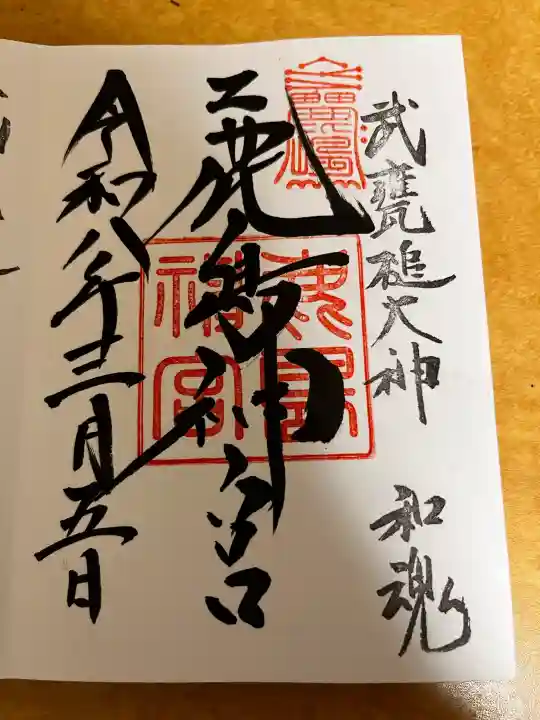 武甕槌大神 和魂
鹿島神宮
鹿島神宮
令和八年三月五日